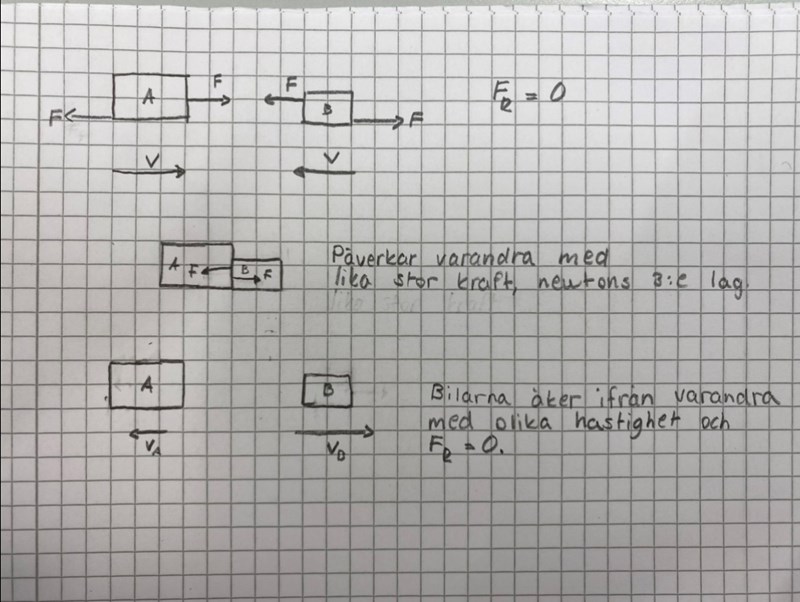 F A F F B F F_R = 0
V V
A F B F Påverkar varandra med
lika stor kraft, newtons 3:e lag.
A B Bilarna åker ifrån varandra
med olika hastighet och
V_A V_B F_R = 0.